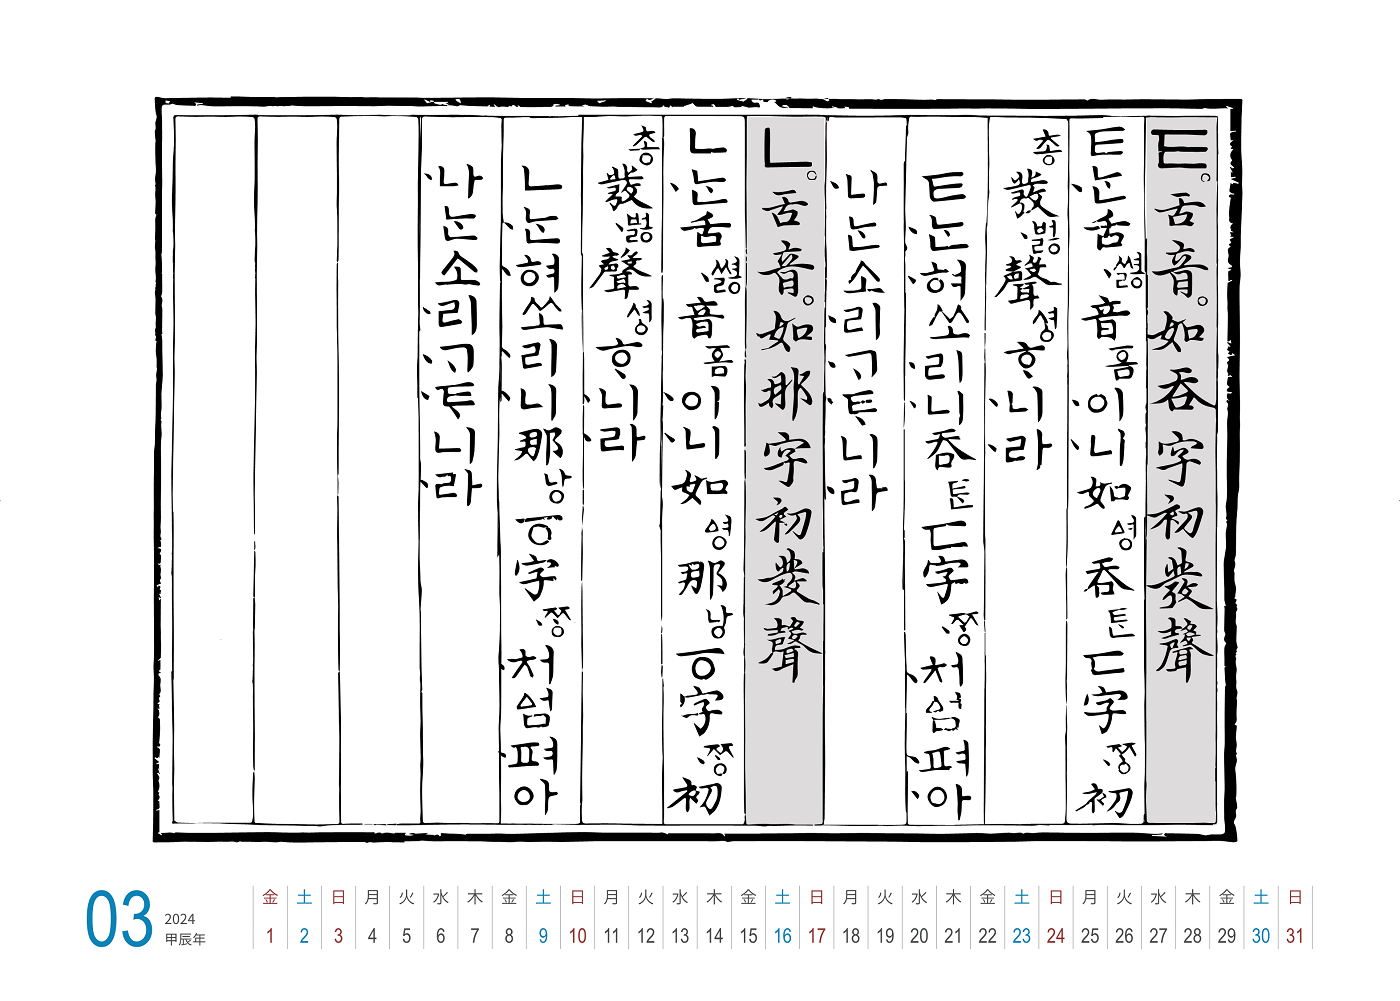 ㅌ。舌音。如呑字初發聲
ㅌ·ᄂᆞᆫ舌·쎯音ᅙᅳᆷ·이·니如ᅀᅧᆼ呑ᄐᆞᆫㄷ字·ᄍᆞᆼ初
총發·벓聲셩ᄒᆞ·니·라
ㅌ·ᄂᆞᆫ·혀쏘·리·니呑ᄐᆞᆫㄷ字·ᄍᆞᆼ·처ᅀᅥᆷ·펴·아
·나ᄂᆞᆫ소·리·ᄀᆞ·ᄐᆞ니·라
ㄴ。舌音。如那字初發聲
ㄴ·ᄂᆞᆫ舌·쎯音ᅙᅳᆷ·이·니如ᅀᅧᆼ那낭ㆆ字·ᄍᆞᆼ初
총發·벓聲셩ᄒᆞ·니·라
ㄴ·ᄂᆞᆫ·혀쏘·리·니那낭ㆆ字·ᄍᆞᆼ·처ᅀᅥᆷ·펴아
·나ᄂᆞᆫ소·리·ᄀᆞ·ᄐᆞ니·라
03
2024
甲辰年
金 土 日 月 火 水 木 金 土 日 月 火 水 木 金 土 日 月 火 水 木 金 土 日 月 火 水 木 金 土 日
1 2 3 4 5 6 7 8 9 10 11 12 13 14 15 16 17 18 19 20 21 22 23 24 25 26 27 28 29 30 31